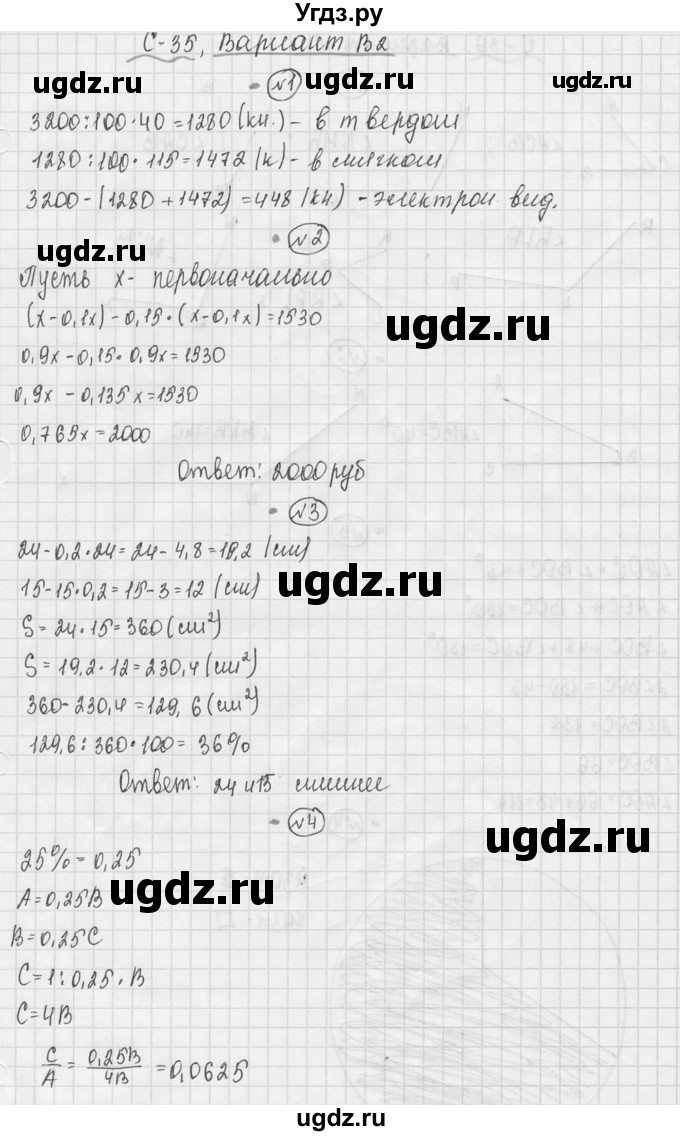 Угдз.ру
С-35, Вариант В2
ugdz.ru ugdz.ru ugdz.ru
№1
3200:100·40=1280(кн.)- в твердом
1280:100·115=1472(к)- в мягком
3200-(1280+1472)=448(кн.) -электрон вид.
№2
ugdz.ru
Пусть х- первоначально
(х-0,1х)-0,15·(х-0,1х)=1530
ugdz.ru
0,9х-0,15·0,9х=1530
0,9х-0,135х=1530
0,765х=2000
Ответ: 2000руб
№3
24-0,2·24=24-4,8=19,2(см)
15-15·0,2=15-3=12(см)
ugdz.ru
S=24·15=360(см²)
S=19,2·12=230,4(см²)
360-230,4=129,6(см²)
129,6:360·100=36%
ugdz.ru
Ответ: 24 и 15
№4
ugdz.ru
25%=0,25
ugdz.ru
А=0,25В
В=0,25С
С=1:0,25·В
С=4В
С/А=0,25В/4В=0,0625
ugdz.ru